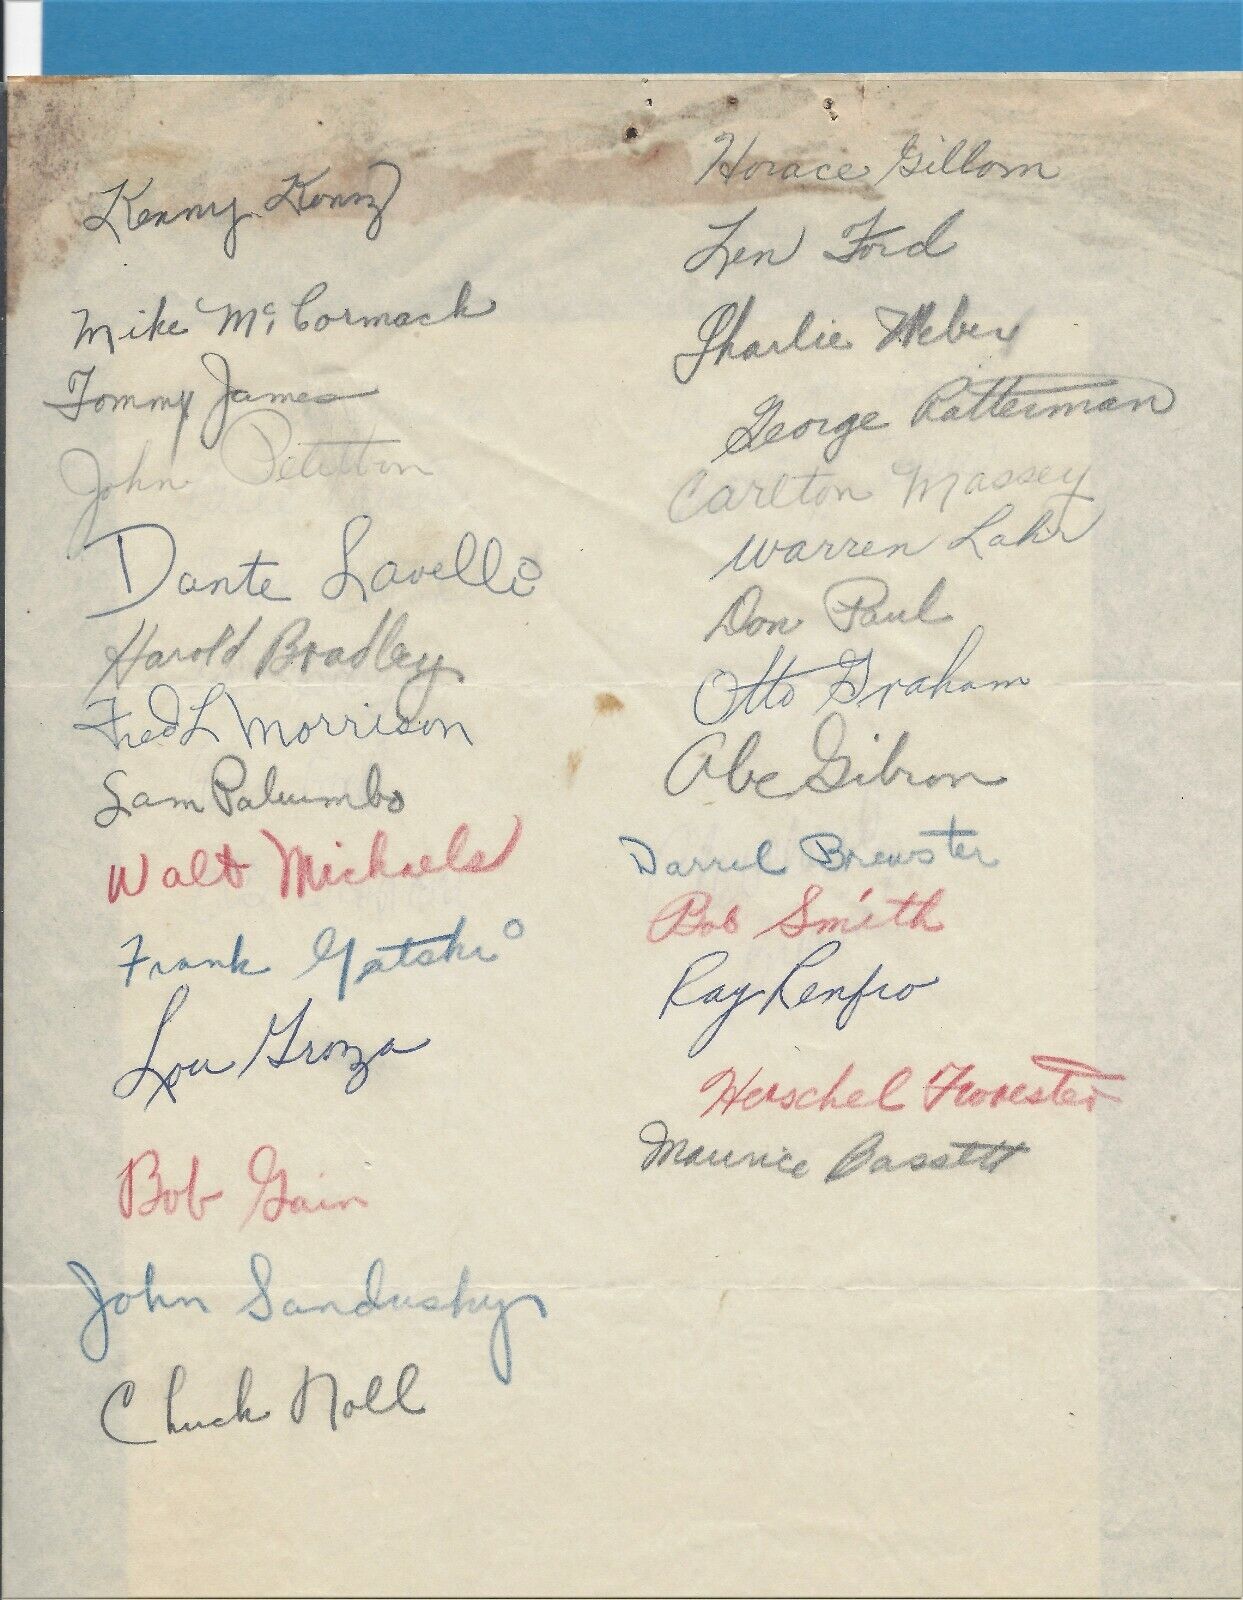 Kenny Konz
Mike McCormack
Tommy James
John Petitbon
Dante Lavelli
Harold Bradley
Fred L Morrison
Sam Palumbo
Walt Michaels
Frank Gatski
Lou Groza
Bob Gain
John Sandusky
Chuck Noll
Horace Gillom
Len Ford
Charlie Weber
George Ratterman
Carlton Massey
Warren Lahr
Don Paul
Otto Graham
Abe Gibron
Darrel Brewster
Bob Smith
Ray Renfro
Herschel Forester
Maurice Bassett